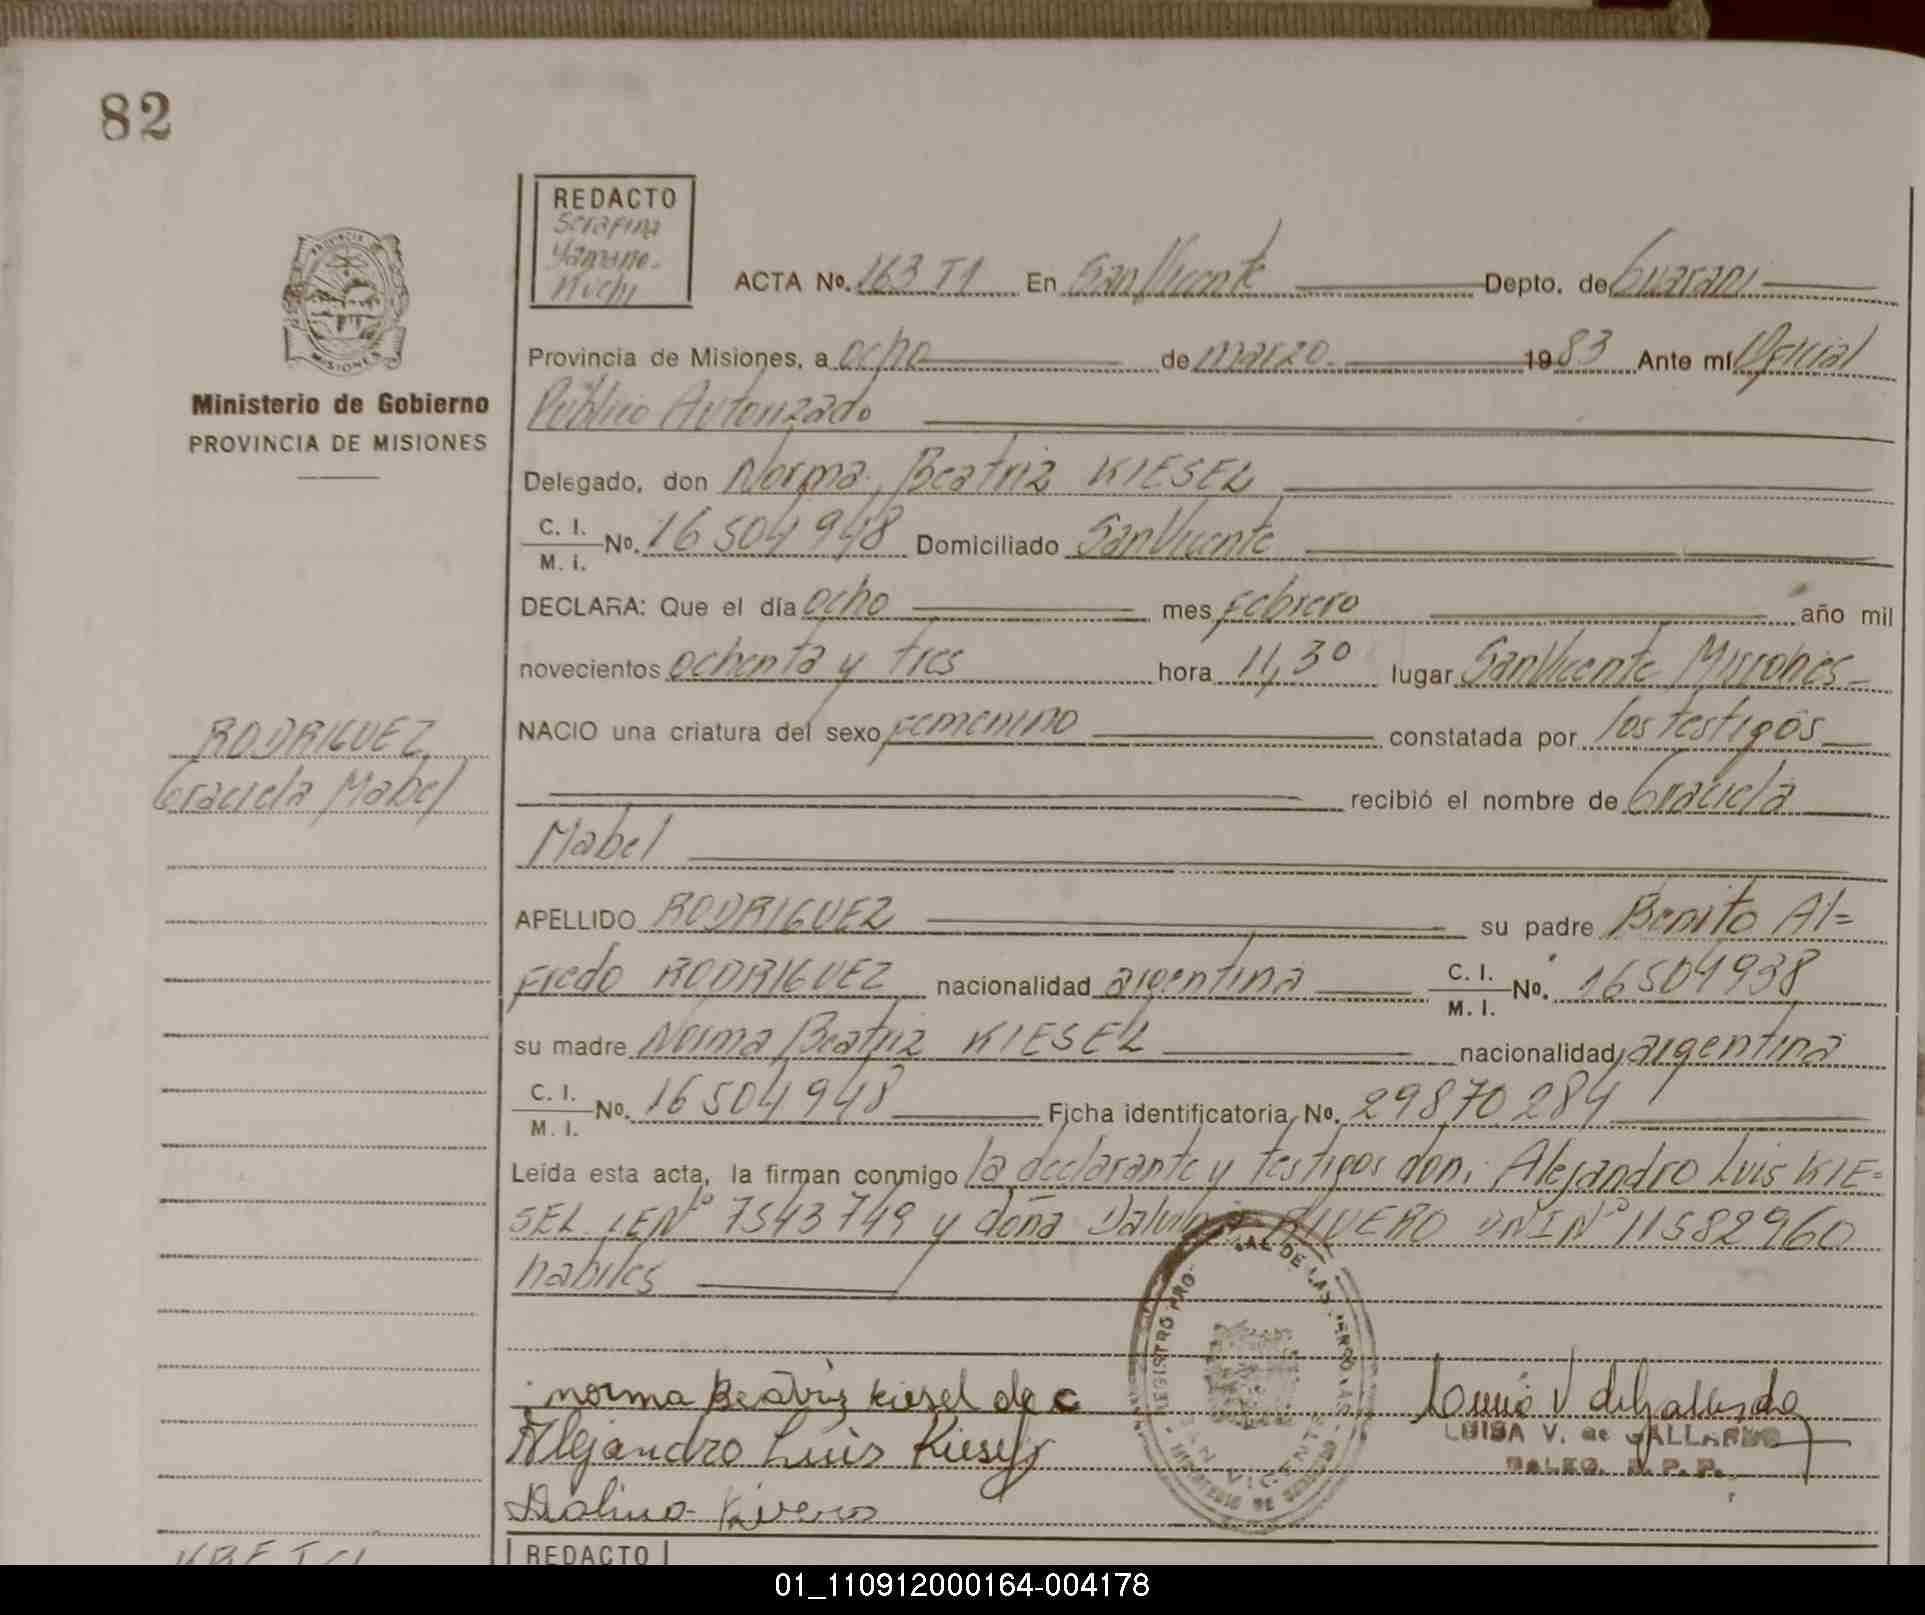 82
REDACTO
Serafina
PROVINCIA DE
MISIONES
ACTA No. 163 T1 En San Vicente Depto. de Guarani
Provincia de Misiones, a ocho de marzo 1983 Ante mí Oficial
Ministerio de Gobierno
Público Autorizado
PROVINCIA DE MISIONES
Delegado, don Norma Beatriz KIESEL
C. I.
M. I. No. 16504948 Domiciliado San Vicente
DECLARA: Que el día ocho mes febrero año mil
novecientos ochenta y tres hora 11,30 lugar San Vicente Misiones
NACIO una criatura del sexo femenino constatada por los testigos
RODRIGUEZ
Graciela Mabel
recibió el nombre de Graciela
Mabel
APELLIDO RODRIGUEZ su padre Benito Al=
fredo RODRIGUEZ nacionalidad argentina C. I.
M. I. No. 16504938
su madre Norma Beatriz KIESEL nacionalidad argentina
C. I.
M. I. No. 16504948 Ficha identificatoria No. 29870284
Leída esta acta, la firman conmigo la declarante y testigos don: Alejandro Luis KIE=
SEL LE Nº 7543749 y doña RIVERO DNI Nº 11582960
habiles
REGISTRO PRO AL DE LAS PERSONAS
norma Beatriz kiesel de
Alejandro Luis Kiesel
Rivero
LUISA V. de GALLARDO
REDACTO
01_110912000164-004178